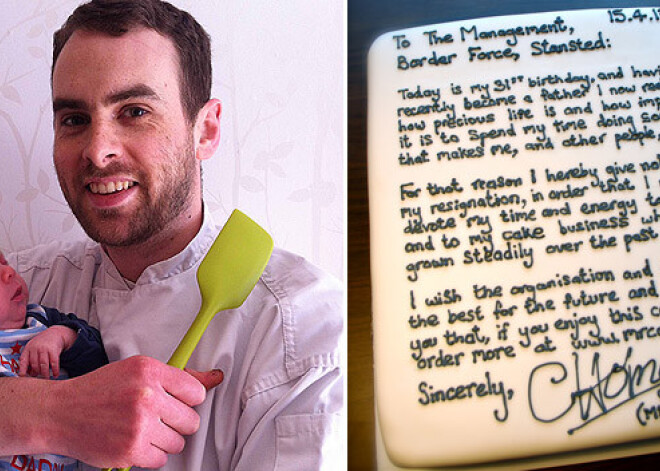 15.4.1
To The Management,
Border Force, Stansted:
Today is my 31st birthday, and havi
recently become a father I now rea
how precious life is and how imp
it is to spend my time doing so
that makes me, and other people,
For that reason I hereby give not
my resignation, in order that I
devote my time and energy to
and to my cake business w
grown steadily over the past
I wish the organisation and
the best for the future and
you that, if you enjoy this c
order more at www.mrca
Sincerely,
CHolm
(M
DADDY